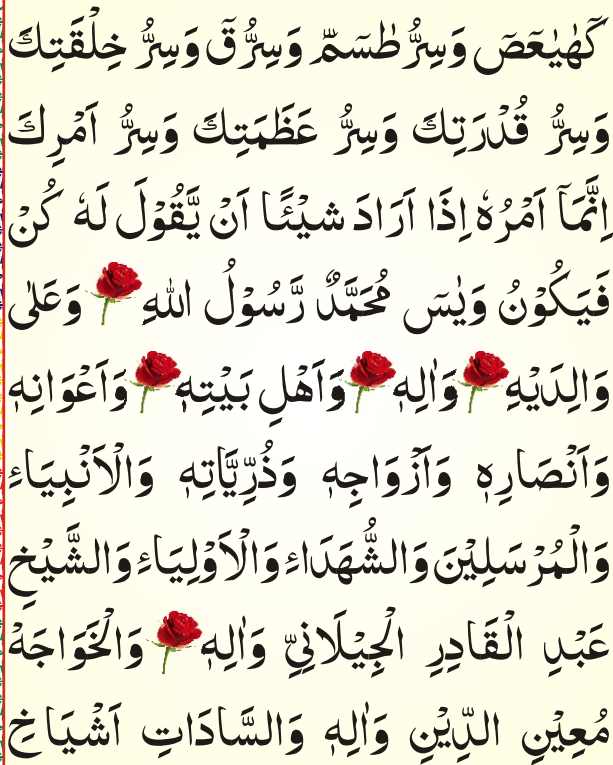 كٓهٰيٰعٓصٓ وَسِرُّ طٰسٓمّٓ وَسِرُّ قٓ وَسِرُّ خِلْقَتِكَ
وَسِرُّ قُدْرَتِكَ وَسِرُّ عَظَمَتِكَ وَسِرُّ اَمْرِكَ
اِنَّمَآ اَمْرُهٗ اِذَا اَرَادَ شَيْئًا اَنْ يَّقُوْلَ لَهٗ كُنْ
فَيَكُوْنُ وَيٰسٓ مُحَمَّدٌ رَّسُوْلُ اللهِ وَعَلٰى
وَالِدَيْهِ وَاٰلِهٖ وَاَهْلِ بَيْتِهٖ وَاَعْوَانِهٖ
وَاَنْصَارِهٖ وَاَزْوَاجِهٖ وَذُرِّيَّاتِهٖ وَالْاَنْبِيَاءِ
وَالْمُرْسَلِيْنَ وَالشُّهَدَاءِ وَالْاَوْلِيَاءِ وَالشَّيْخِ
عَبْدِ الْقَادِرِ الْجِيْلَانِيِّ وَاٰلِهٖ وَالْخَوَاجَهْ
مُعِيْنِ الدِّيْنِ وَاٰلِهٖ وَالسَّادَاتِ اَشْيَاخِ